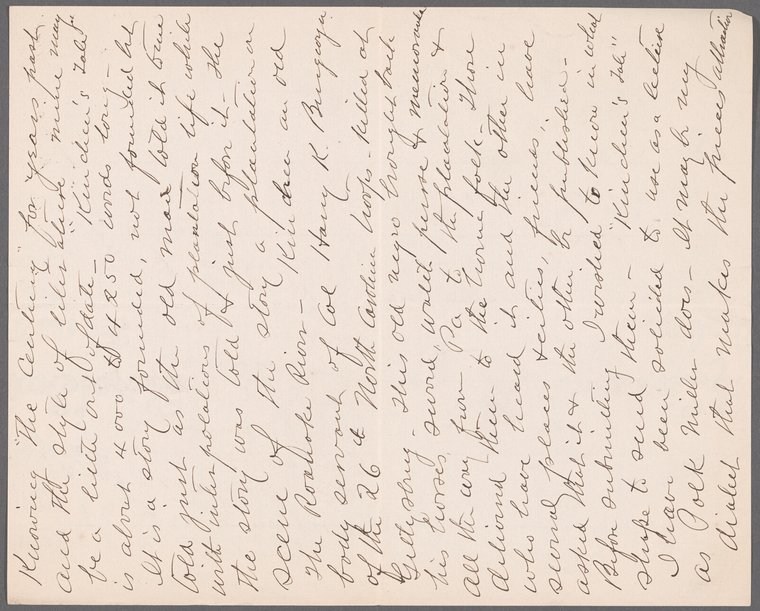 Knowing "The Century" for years past
and the style of literature mine may
be a little out of date - "Kinchen's Tale"
is about 4000 to 4250 words long -
It is a story founded, not founded but
told just as the old man told it true
with interpolations of plantation life while
the story was told & just before it - The
scene of the story a plantation on
The Roanoke River - Kinchen an old
body servant of Col Harry K. Burgwyn
of the 26th North Carolina troops - killed at
Gettysburg - This old negro brought back
his horses, sword, watch purse & memoranda
all the way from Pa to the plantation &
delivered them to the home folk - Those
who have heard it and the other in
several places & cities, "friends," have
asked that it & the other be published -
Before submitting them I wished to know in what
shape to send them - "Kinchen's Tale"
I have been solicited to use as a lecture
as Polk Miller does - It may be my
dialect that makes the pieces attractive